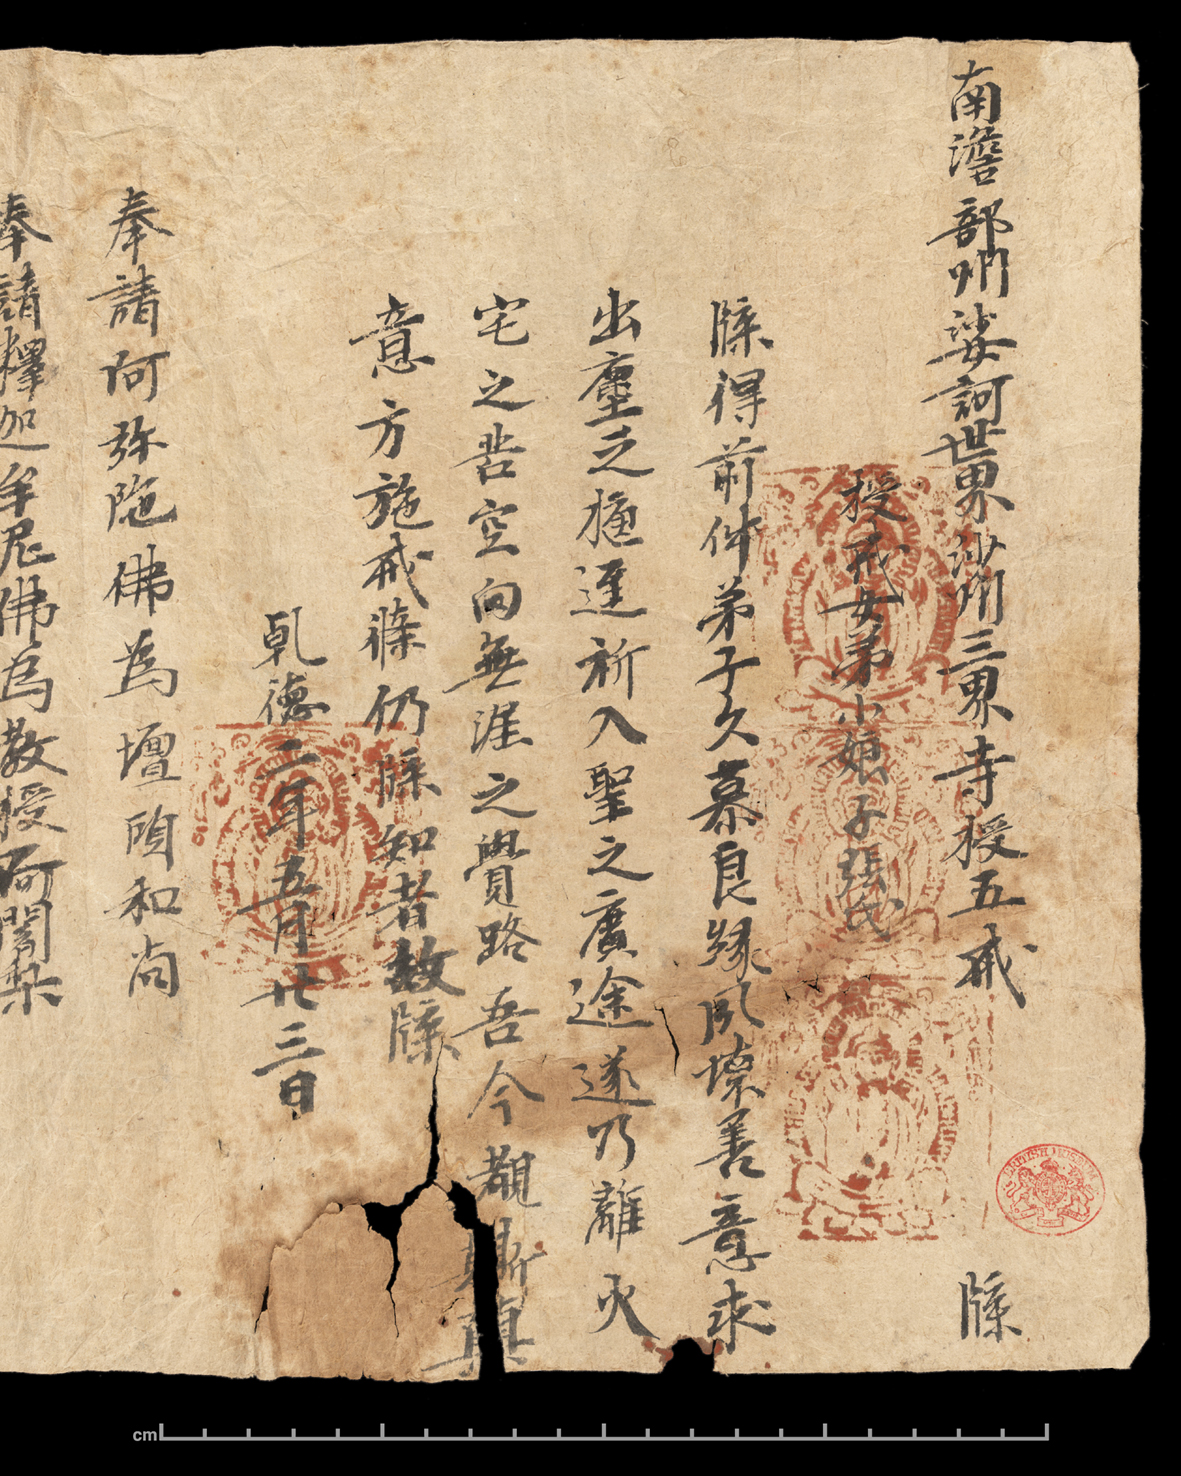 南澹部州娑訶世界沙州三界寺授五戒牒
授戒女弟小娘子張氏
牒得前件弟子久慕良緣夙懷善意求
出塵之捷逕祈入聖之廣途遂乃離火
宅之苦空向無涯之覺路吾今觀斯真
意方施戒牒仍牒知者故牒
乹德二年五月廿三日
奉請阿弥陁佛為壇頭和尚
奉請釋迦牟尼佛為教授阿闍梨
BRITISH MUSEUM
cm